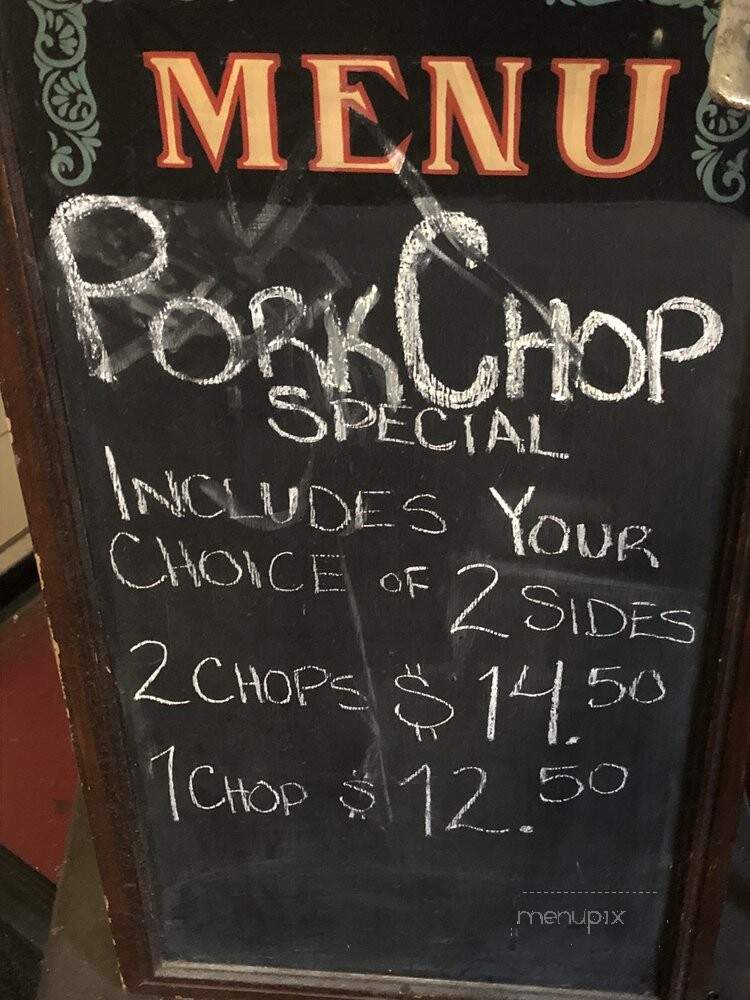 MENU
PORK CHOP
SPECIAL
INCLUDES YOUR
CHOICE OF 2 SIDES
2 CHOPS $14.50
1 CHOP $12.50
menupix